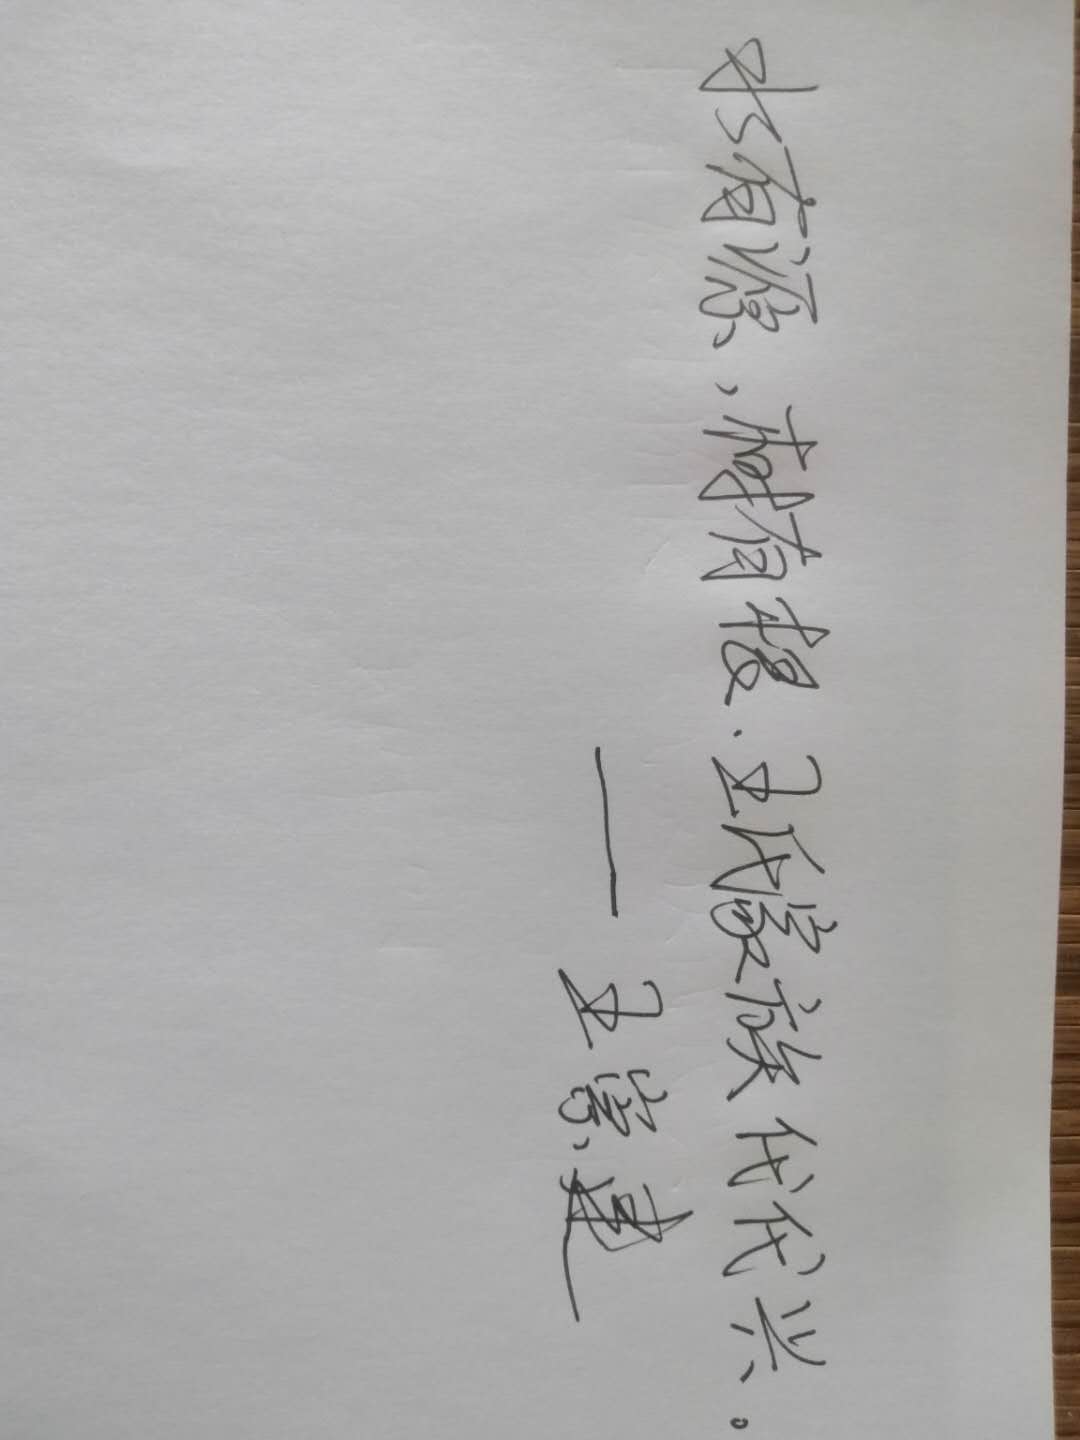 水有源、树有根.卫氏家族代代兴。
——卫崇建